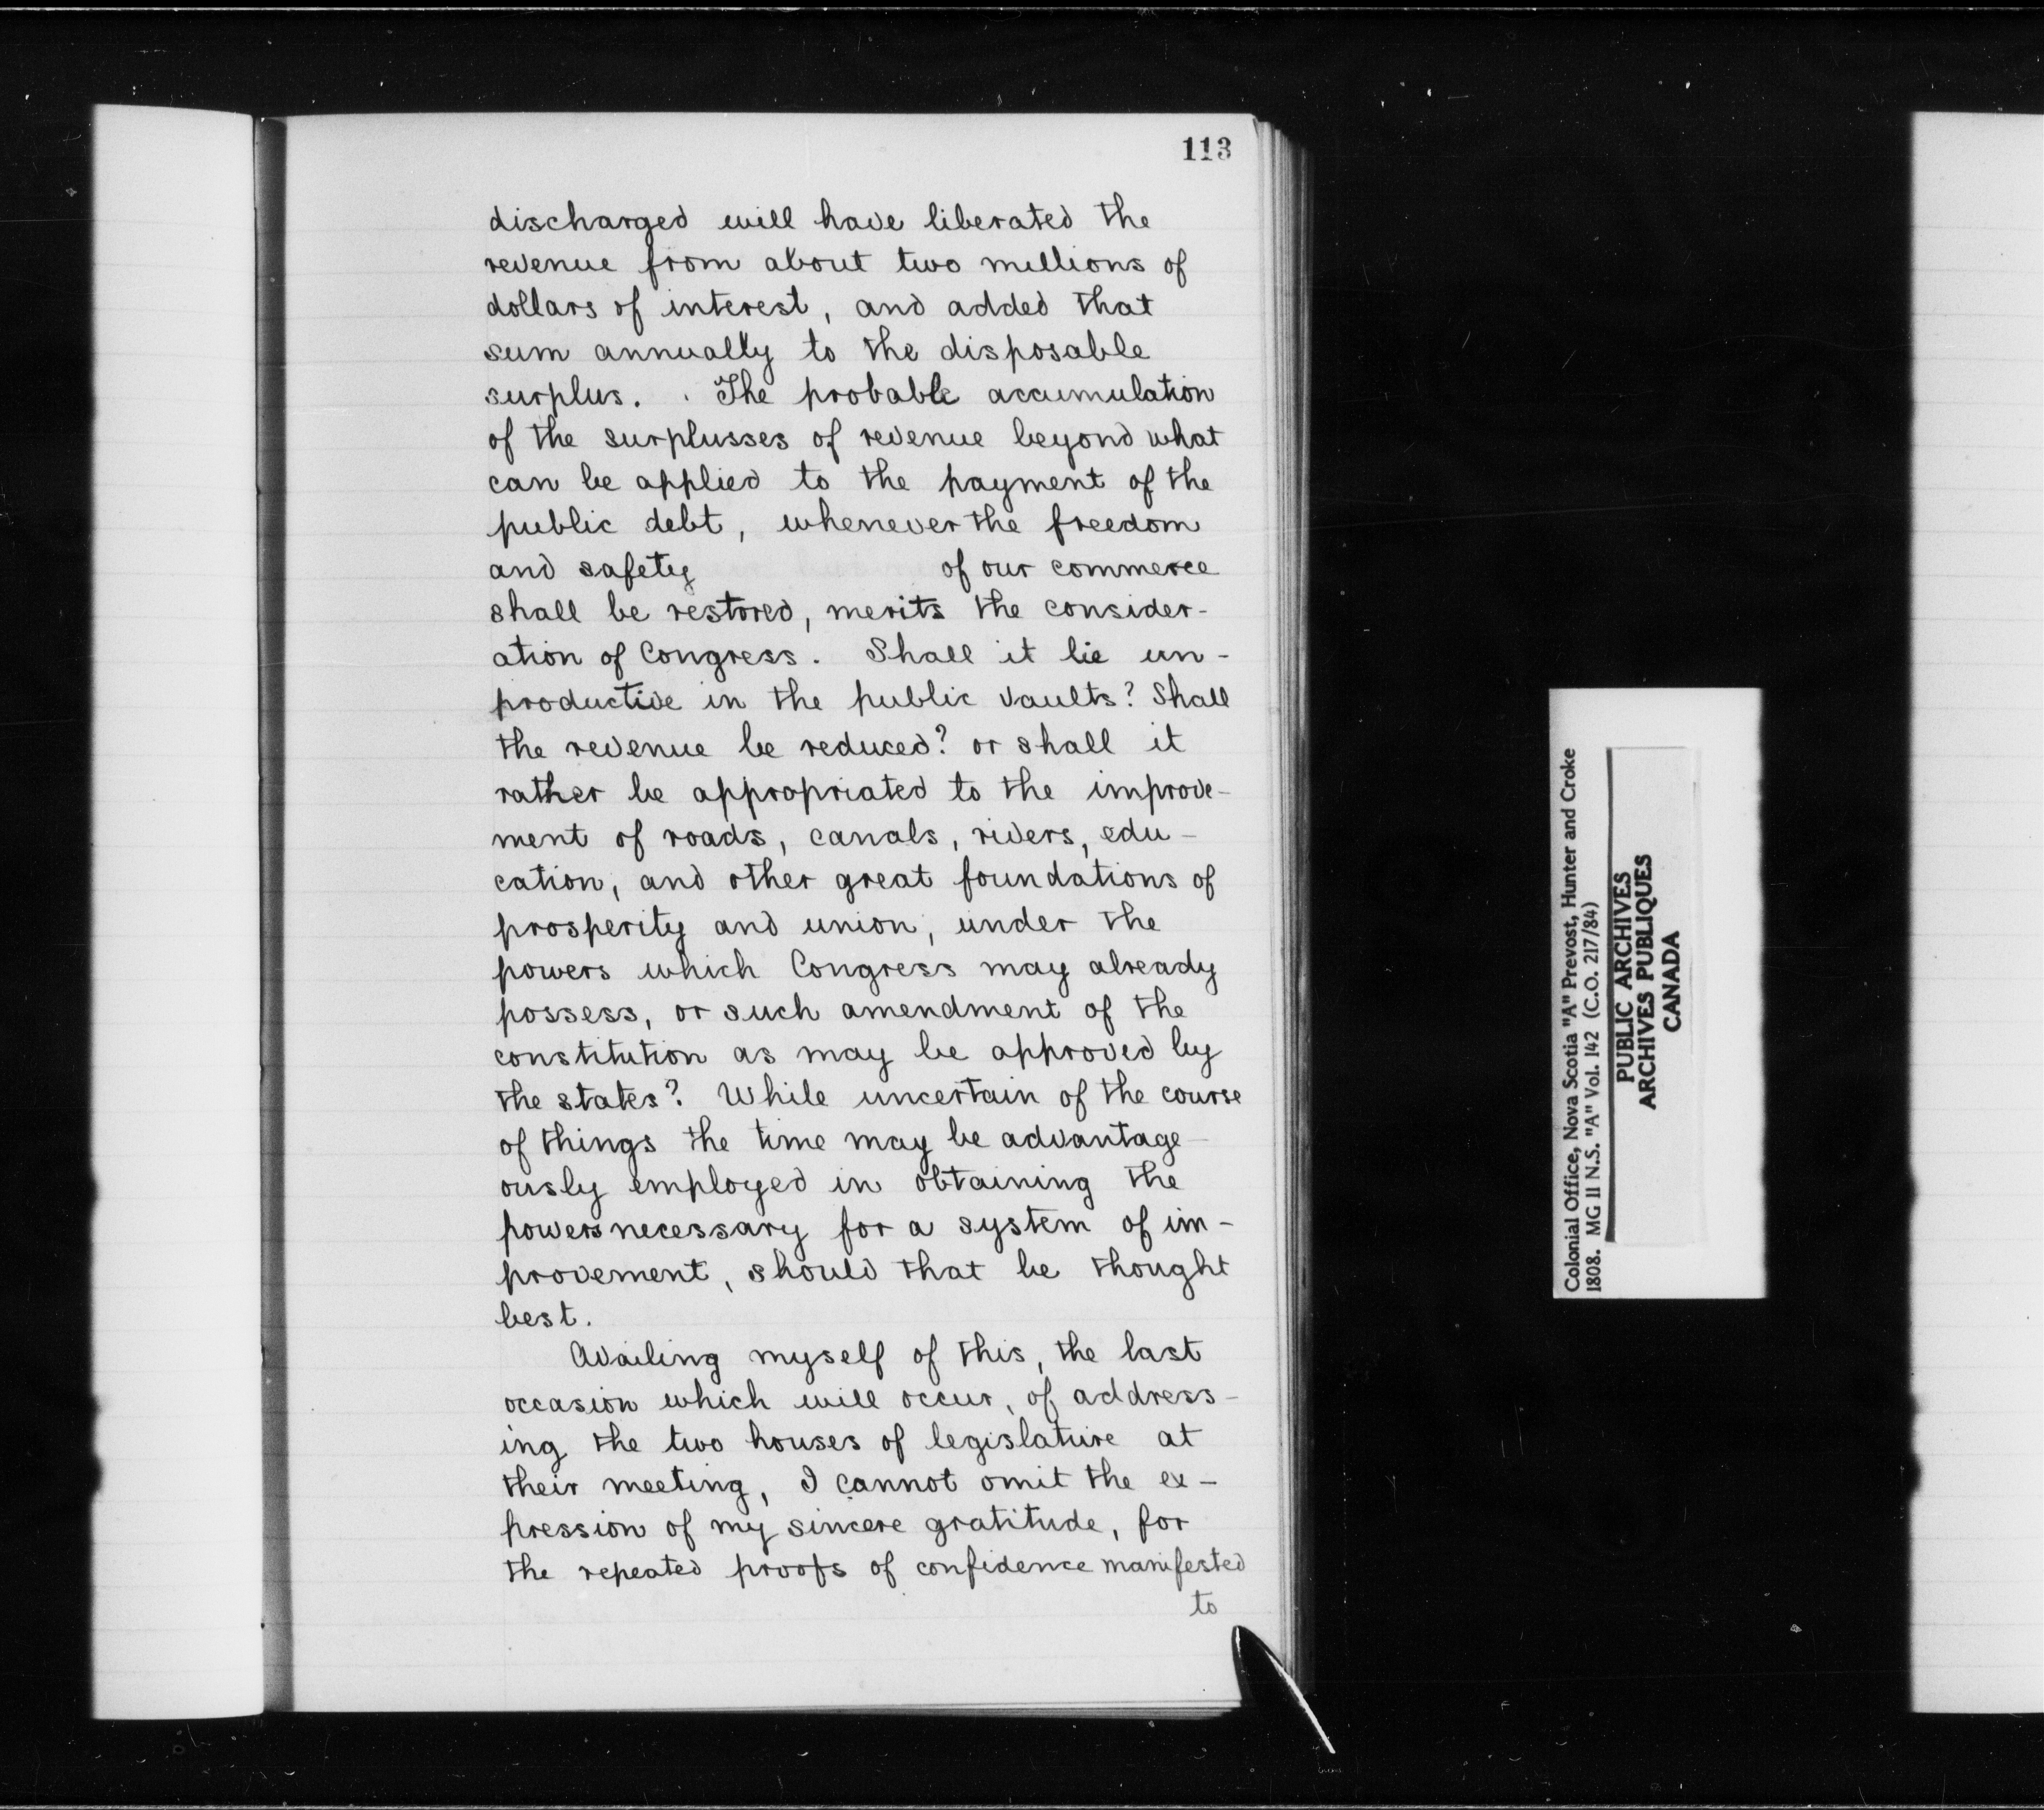 113
discharged will have liberated the
revenue from about two millions of
dollars of interest, and added that
sum annually to the disposable
surplus. The probable accumulation
of the surplusses of revenue beyond what
can be applied to the payment of the
public debt, whenever the freedom
and safety of our commerce
shall be restored, merits the consider-
ation of Congress. Shall it lie un-
productive in the public vaults? Shall
the revenue be reduced? or shall it
rather be appropriated to the improve-
ment of roads, canals, rivers, edu-
cation, and other great foundations of
prosperity and union, under the
powers which Congress may already
possess, or such amendment of the
constitution as may be approved by
the states? While uncertain of the course
of things the time may be advantage-
ously employed in obtaining the
powers necessary for a system of im-
provement, should that be thought
best.
Availing myself of this, the last
occasion which will occur, of address-
ing the two houses of legislature at
their meeting, I cannot omit the ex-
pression of my sincere gratitude, for
the repeated proofs of confidence manifested
to
Colonial Office, Nova Scotia "A" Prevost, Hunter and Croke
1808. MG 11 N.S. "A" Vol. 142 (C.O. 217/84)
PUBLIC ARCHIVES
ARCHIVES PUBLIQUES
CANADA